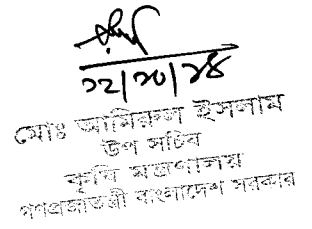 ১২/১০/১৪
মোঃ আমিরুল ইসলাম
উপ সচিব
কৃষি মন্ত্রণালয়
গণপ্রজাতন্ত্রী বাংলাদেশ সরকার